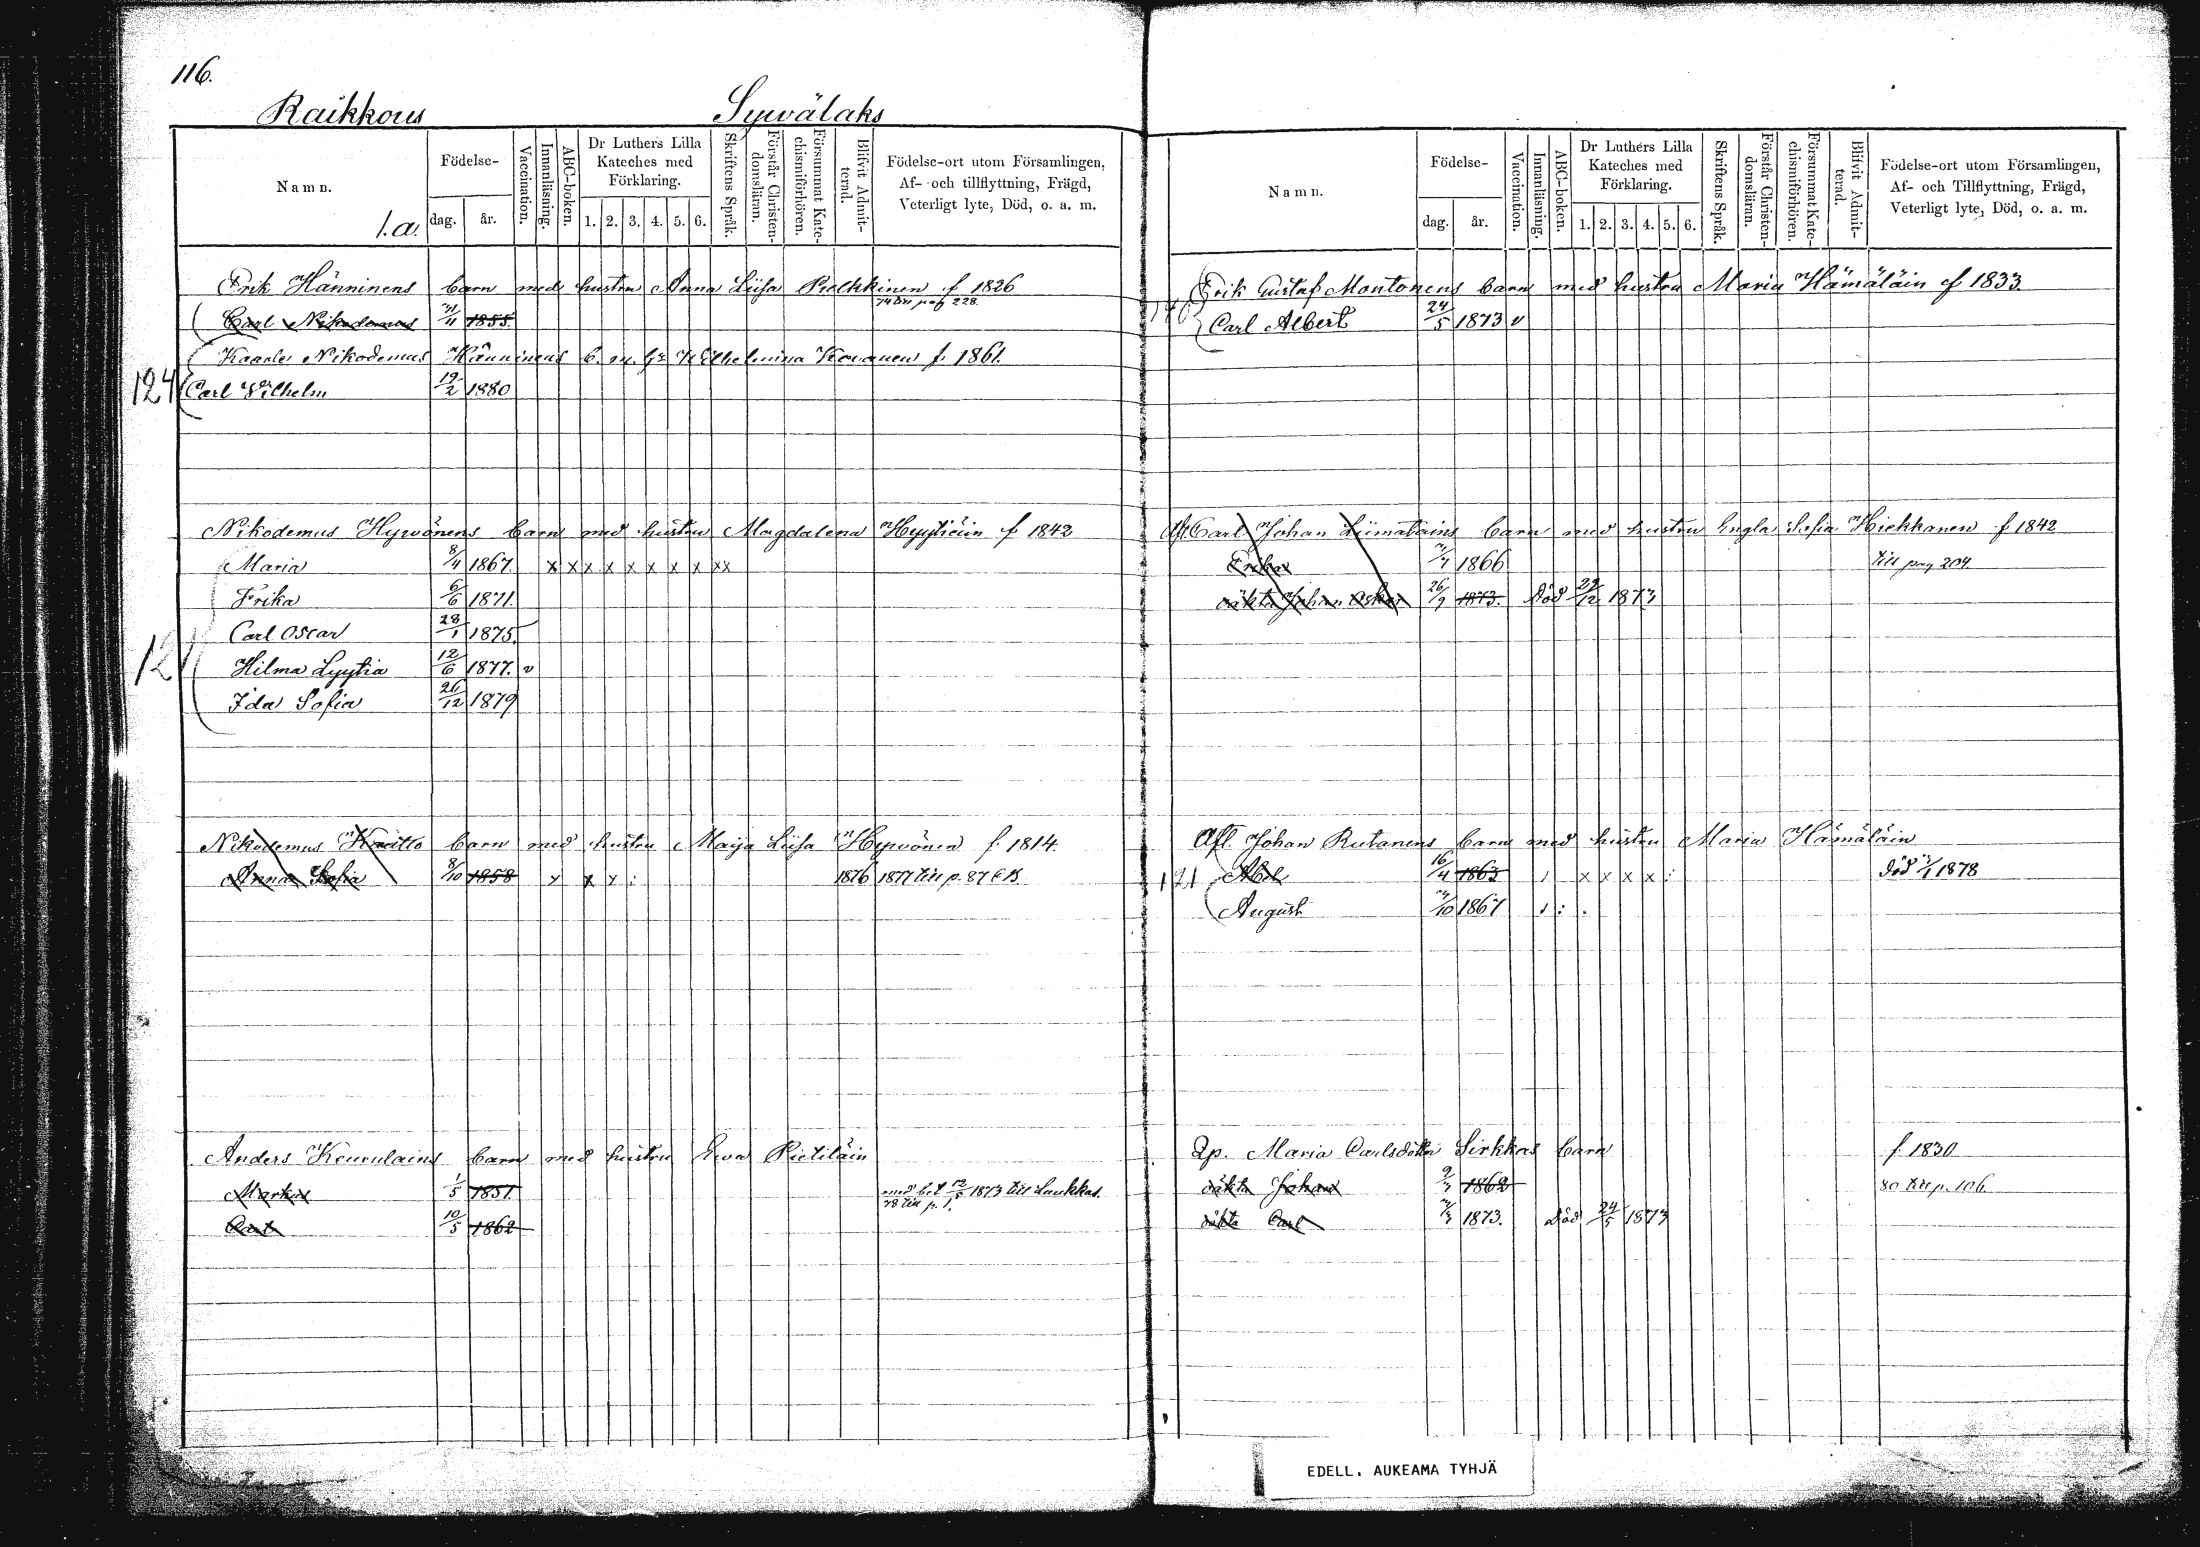 116.
Raikkous Sywälaks
Namn.
1.a.
Födelse-
dag. år.
Vaccination.
Innanläsning.
ABC-boken.
Dr Luthers Lilla Kateches med Förklaring.
1. 2. 3. 4. 5. 6.
Skriftens Språk.
Förstår Christendomsläran.
Försummat Katechismiförhören.
Blifvit Admitterad.
Födelse-ort utom Församlingen,
Af- och tillflyttning, Frägd,
Veterligt lyte, Död, o. a. m.
Erik Hänninens barn med hustru Anna Liisa f 1826
Carl Nikodemus 1855. till pag 228.
Kaarle Nikodemus Hänninens b. m. h. Wilhelmina f. 1861.
124 Carl Wilhelm 19/2 1880
Nikodemus Hyvönens barn med hustru Magdalena Hyytiäin f 1842
Maria 8/4 1867. x x x x x x x x xx
Erika 6/6 1871.
Carl Oscar 28/1 1875.
121 Hilma Lyytia 12/6 1877. v
Ida Sofia 26/12 1879
Nikodemus barn med hustru Maija Liisa Hyvönen f. 1814.
Anna Sofia 8/10 1858 x x x : 1876 1877 till p. 87
Anders Keurulains barn med hustru Ewa Pietiläin
Markus 1/5 1851. med bet 1873 till Laukkas.
78 till p. 1.
10/5 1862
Namn.
Födelse-
dag. år.
Vaccination.
Innanläsning.
ABC-boken.
Dr Luthers Lilla Kateches med Förklaring.
1. 2. 3. 4. 5. 6.
Skriftens Språk.
Förstår Christendomsläran.
Försummat Katechismiförhören.
Blifvit Admitterad.
Födelse-ort utom Församlingen,
Af- och Tillflyttning, Frägd,
Veterligt lyte, Död, o. a. m.
Erik Gustaf Montonens barn med hustru Maria Hämäläin f 1833.
Carl Albert 24/5 1873 v
Afl. Carl Johan Liimatains barn med hustru Engla Sofia Hiekkanen f 1842
Erika 1866 till pag 204.
oäkta Johan Oskar 26/9 1873. Död 29/12 1873
Afl. Johan Rutanens barn med hustru Maria Hämäläin
121 Abel 16/4 1863 x x x x : död 1878
August 1867
Qp. Maria Carlsdotter Sirkkas barn f. 1830
oäkta Johan 1862 80 till p. 106
oäkta Carl 1873. Död 24/5 1873
EDELL. AUKEAMA TYHJÄ